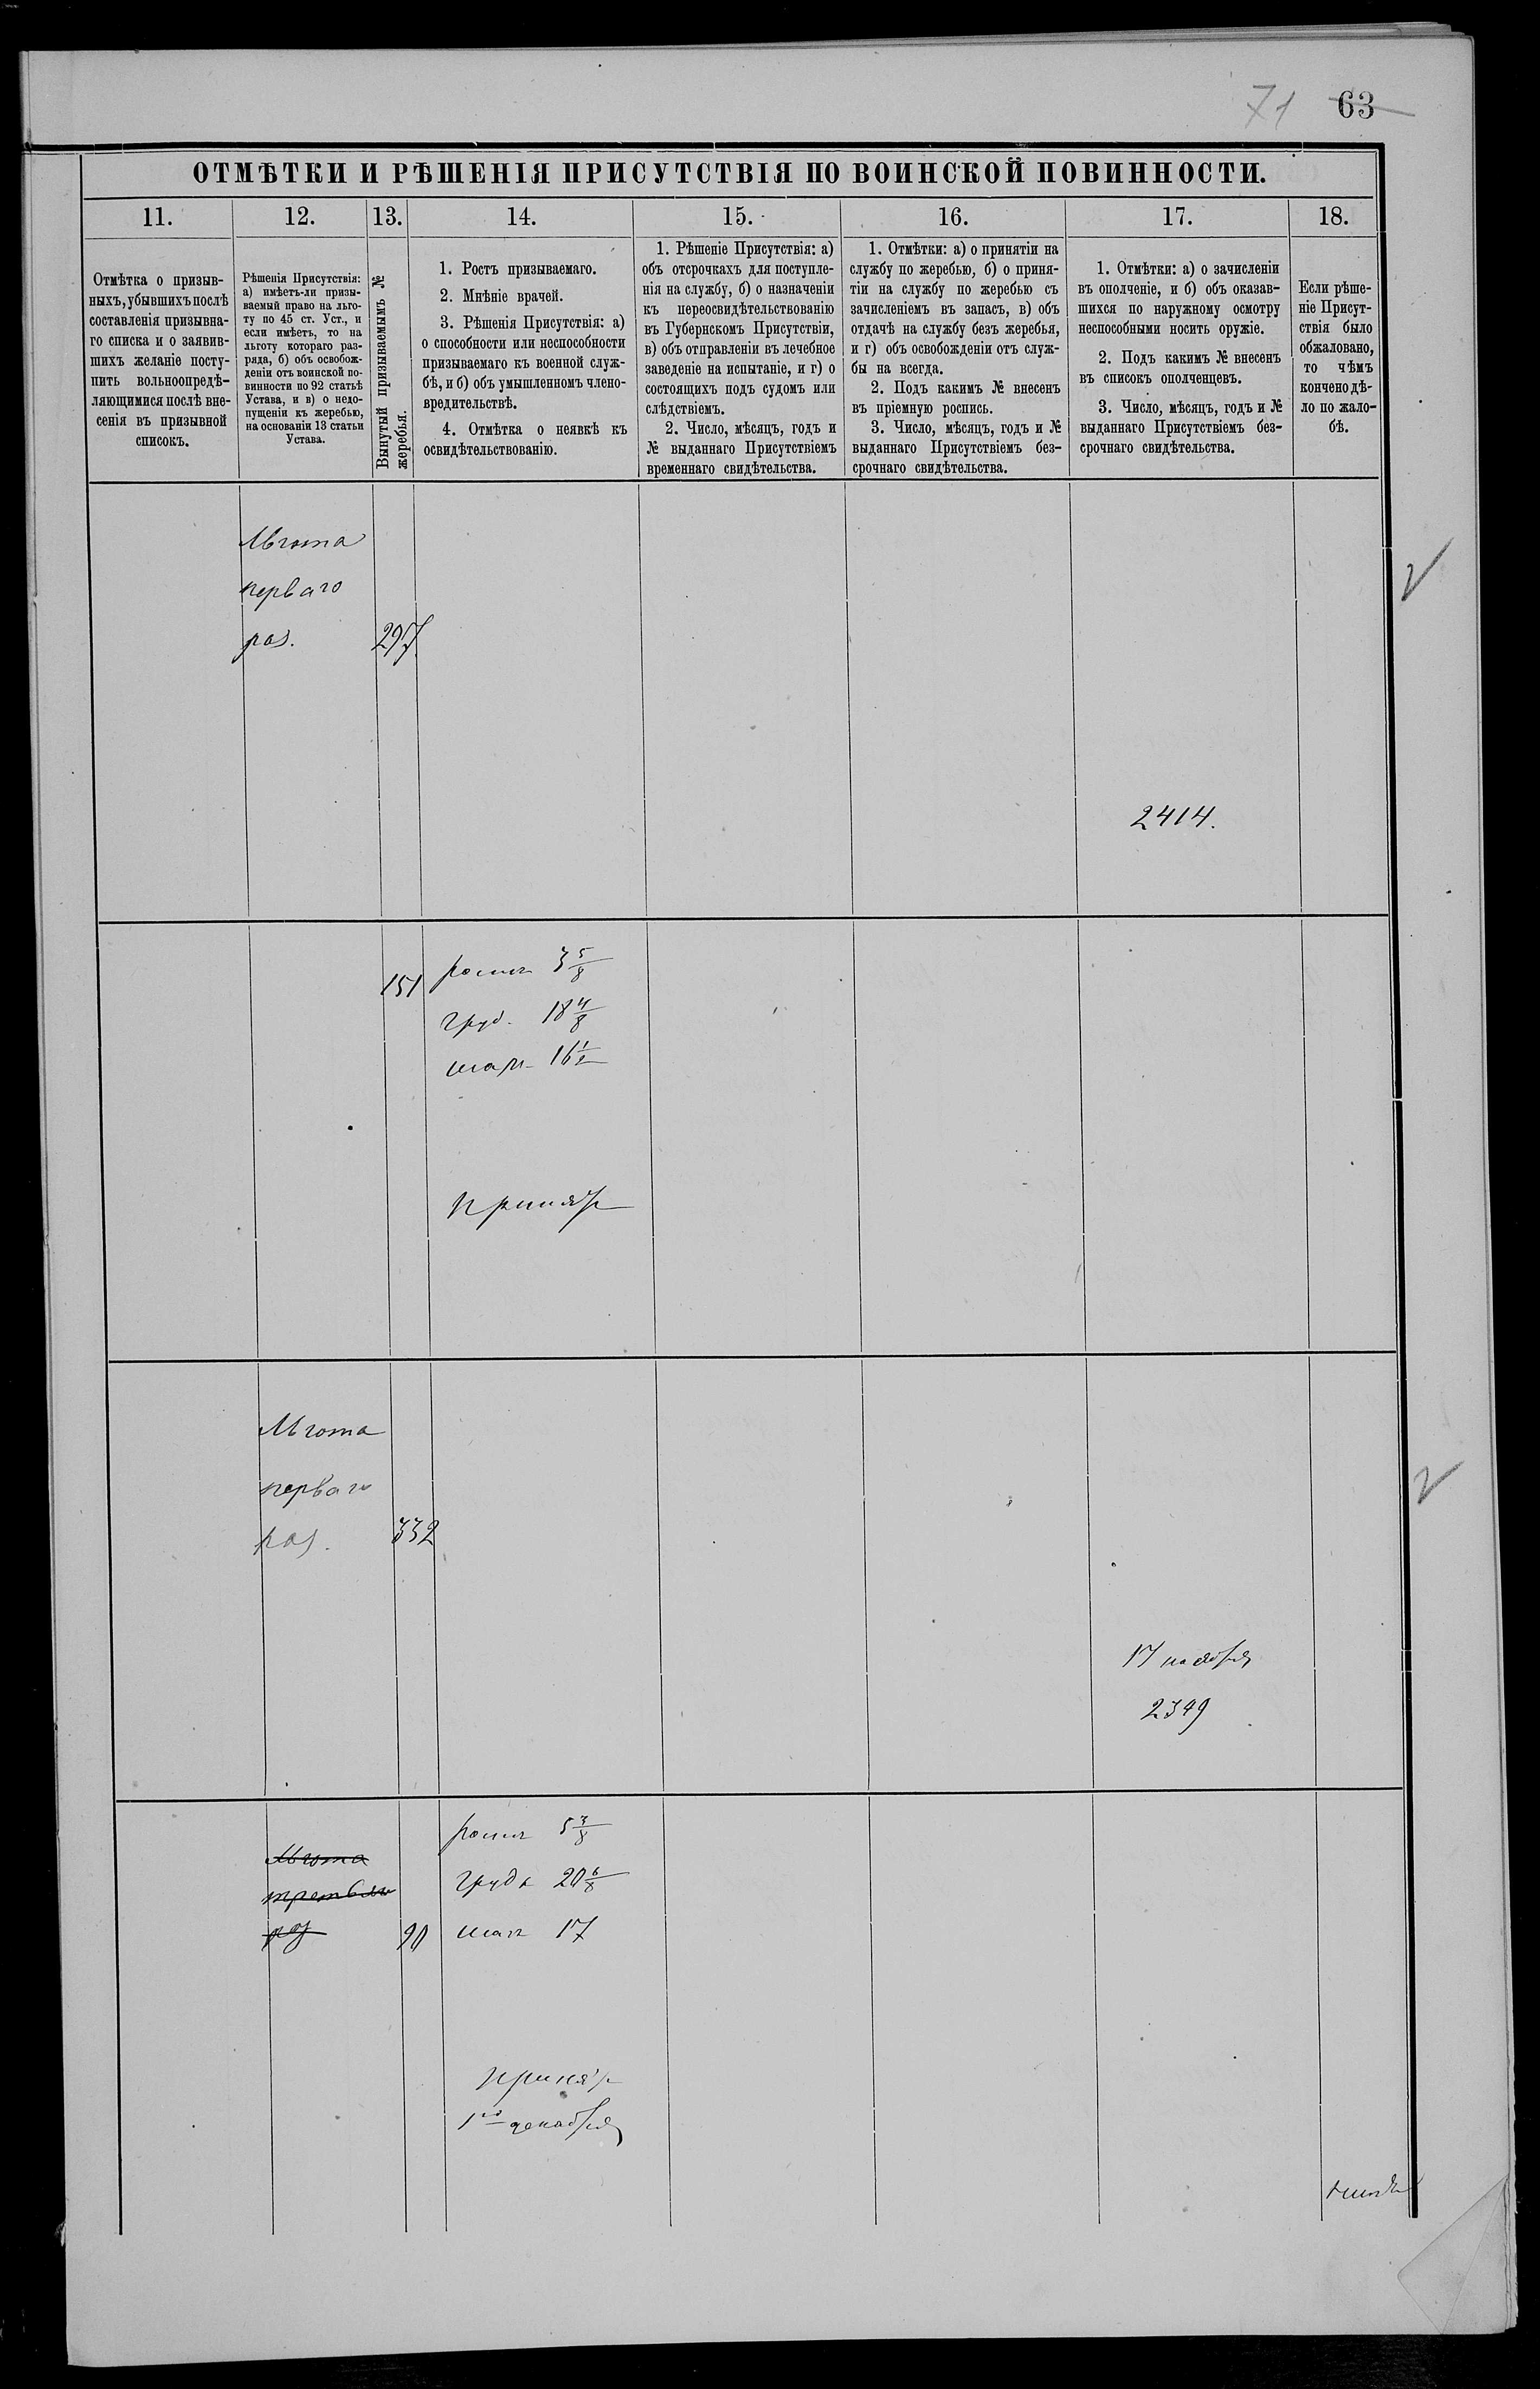 71 63
ОТМѢТКИ И РѢШЕНІЯ ПРИСУТСТВІЯ ПО ВОИНСКОЙ ПОВИННОСТИ.
11.
Отмѣтка о призыв-
ныхъ, убывшихъ послѣ
составленія призывна-
го списка и о заявив-
шихъ желаніе посту-
пить вольноопредѣ-
ляющимися послѣ вне-
сенія въ призывной
списокъ.
12.
Рѣшенія Присутствія:
а) имѣетъ-ли призы-
ваемый право на льго-
ту по 45 ст. Уст., и
если имѣетъ, то на
льготу котораго раз-
ряда, б) объ освобож-
деніи отъ воинской по-
винности по 92 статьѣ
Устава, и в) о недо-
пущеніи къ жеребью,
на основаніи 13 статьи
Устава.
13.
Вынутый призываемымъ №
жеребья.
14.
1. Ростъ призываемаго.
2. Мнѣніе врачей.
3. Рѣшенія Присутствія: а)
о способности или неспособности
призываемаго къ военной служ-
бѣ, и б) объ умышленномъ члено-
вредительствѣ.
4. Отмѣтка о неявкѣ къ
освидѣтельствованію.
15.
1. Рѣшеніе Присутствія: а)
объ отсрочкахъ для поступле-
нія на службу, б) о назначеніи
къ переосвидѣтельствованію
въ Губернскомъ Присутствіи,
в) объ отправленіи въ лечебное
заведеніе на испытаніе, и г) о
состоящихъ подъ судомъ или
слѣдствіемъ.
2. Число, мѣсяцъ, годъ и
№ выданнаго Присутствіемъ
временнаго свидѣтельства.
16.
1. Отмѣтки: а) о принятіи на
службу по жеребью, б) о приня-
тіи на службу по жеребью съ
зачисленіемъ въ запасъ, в) объ
отдачѣ на службу безъ жеребья,
и г) объ освобожденіи отъ служ-
бы на всегда.
2. Подъ какимъ № внесенъ
въ пріемную роспись.
3. Число, мѣсяцъ, годъ и №
выданнаго Присутствіемъ без-
срочнаго свидѣтельства.
17.
1. Отмѣтки: а) о зачисленіи
въ ополченіе, и б) объ оказав-
шихся по наружному осмотру
неспособными носить оружіе.
2. Подъ какимъ № внесенъ
въ списокъ ополченцевъ.
3. Число, мѣсяцъ, годъ и №
выданнаго Присутствіемъ без-
срочнаго свидѣтельства.
18.
Если рѣше-
ніе Присут-
ствія было
обжаловано,
то чѣмъ
кончено дѣ-
ло по жало-
бѣ.
Льгота
перваго
раз. 297
2414.
151 ростъ 3 5/8
груд. 18 4/8
1/2
принятъ
Льгота
перваго
раз. 332
17 ноября
2349
Льгота
третьяго
раз 90
ростъ 5 3/8
грудь 20 6/8
17
принятъ
1го декабря